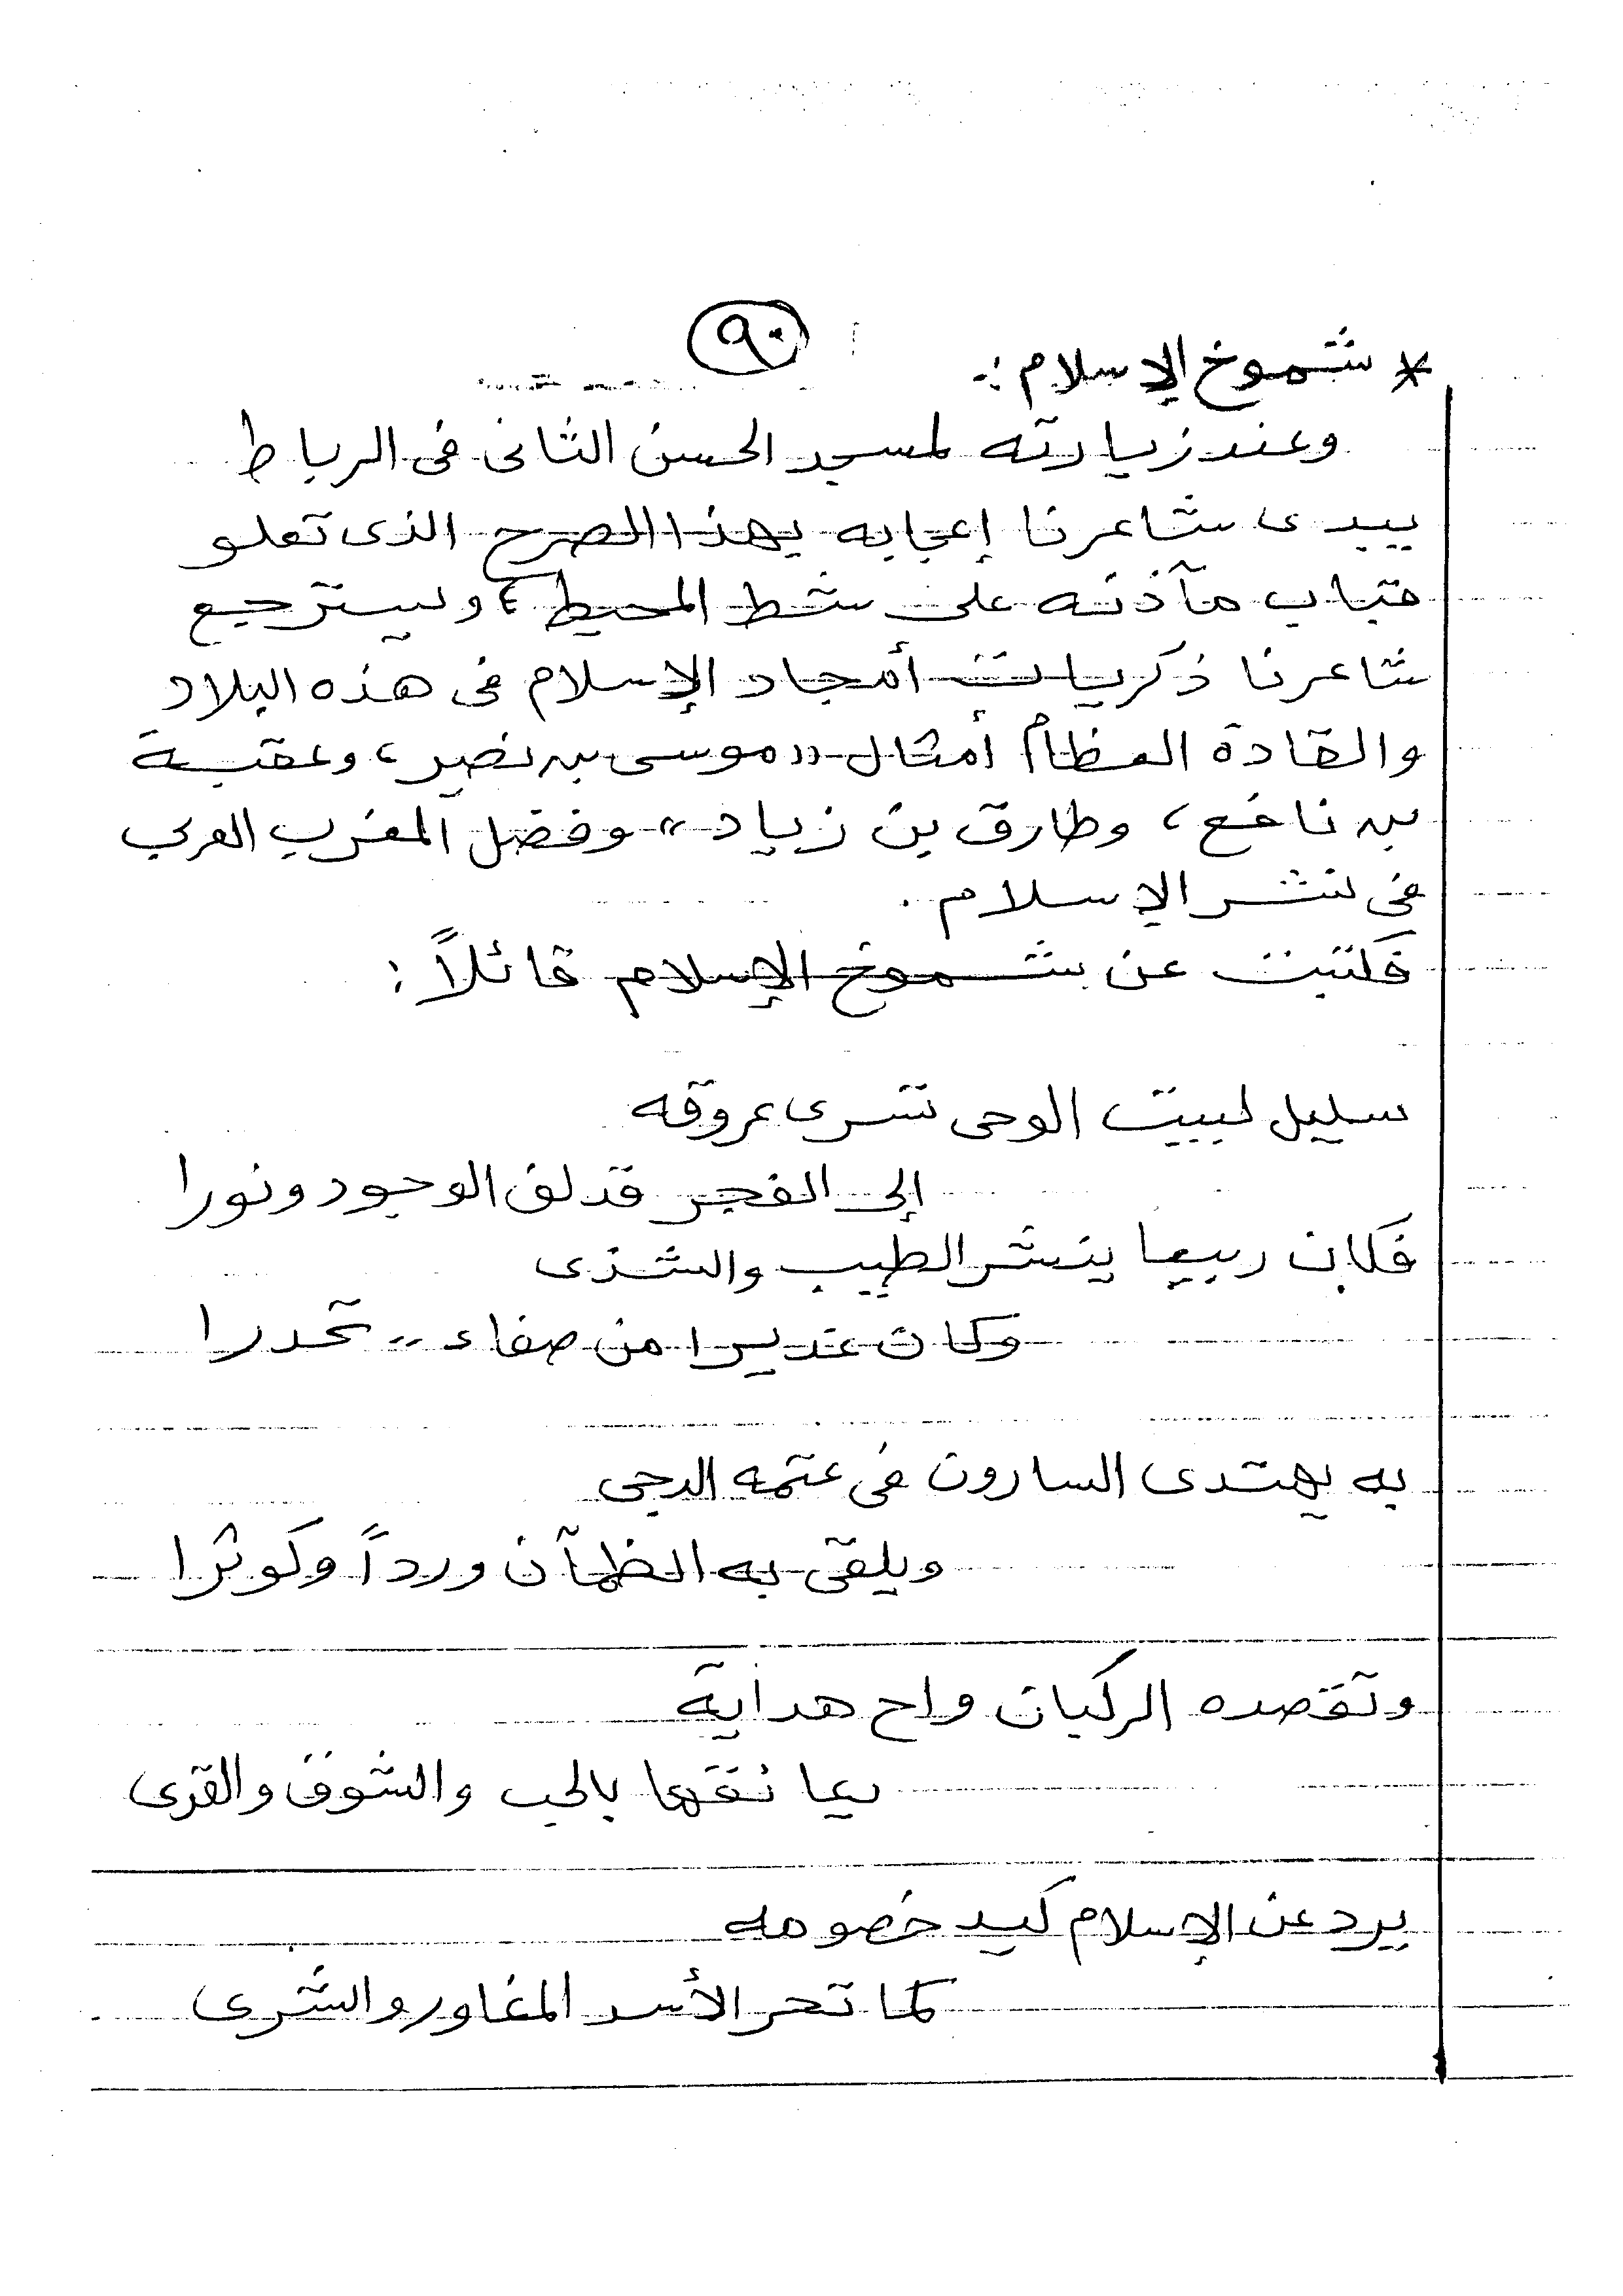 ٩٠
* شموخ الإسلام :-
وعند زيارته لمسجد الحسن الثانى فى الرباط
يبدى شاعرنا إعجابه بهذا الصرح الذى تعلو
قباب مآذنه على شط المحيط ، ويسترجع
شاعرنا ذكريات أمجاد الإسلام فى هذه البلاد
والقادة العظام أمثال "موسى بن نصير ، وعقبة
بن نافع ، وطارق بن زياد" وفضل المغرب العربى
فى نشر الإسلام .
فكتبت عن شموخ الإسلام قائلاً :
سليل لبيت الوحى تسرى عروقه
إلى الفجر قد لف الوجود ونورا
فكان ربيعا ينشر الطيب والشذى
وكان غديرا من صفاء .. تحدرا
به يهتدى السارون فى عتمه الدجى
ويلقى به الظمآن ورداً وكوثرا
وتقصده الركبان واح هداية
يعانقها بالحب والشوق والقرى
يرد عن الإسلام كيد خصومه
كما تحر الأسد المغاور والشرى